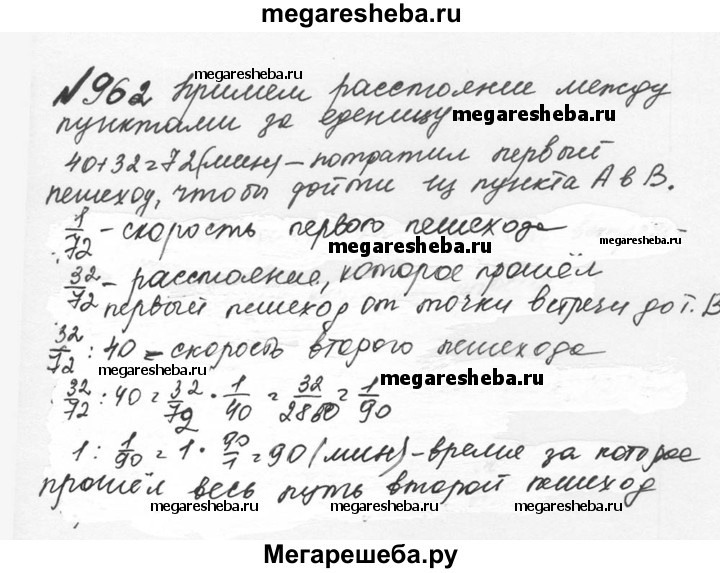 megaresheba.ru
№962 Примем расстояние между
megaresheba.ru
пунктами за еденицу
megaresheba.ru
40+32=72(мин) – потратил первый
пешеход, чтобы дойти из пункта А в В.
1/72 – скорость первого пешехода
megaresheba.ru
megaresheba.ru
32/72 – расстояние, которое прошёл
первый пешеход от точки встречи до т. В
32/72 : 40 – скорость второго пешехода
megaresheba.ru
megaresheba.ru
32/72 : 40 = 32/72 · 1/40 = 32/2880 = 1/90
1 : 1/90 = 1 · 90/1 = 90 (мин) – время за которое
прошёл весь путь второй пешеход
megaresheba.ru
megaresheba.ru
Мегарешеба.ру